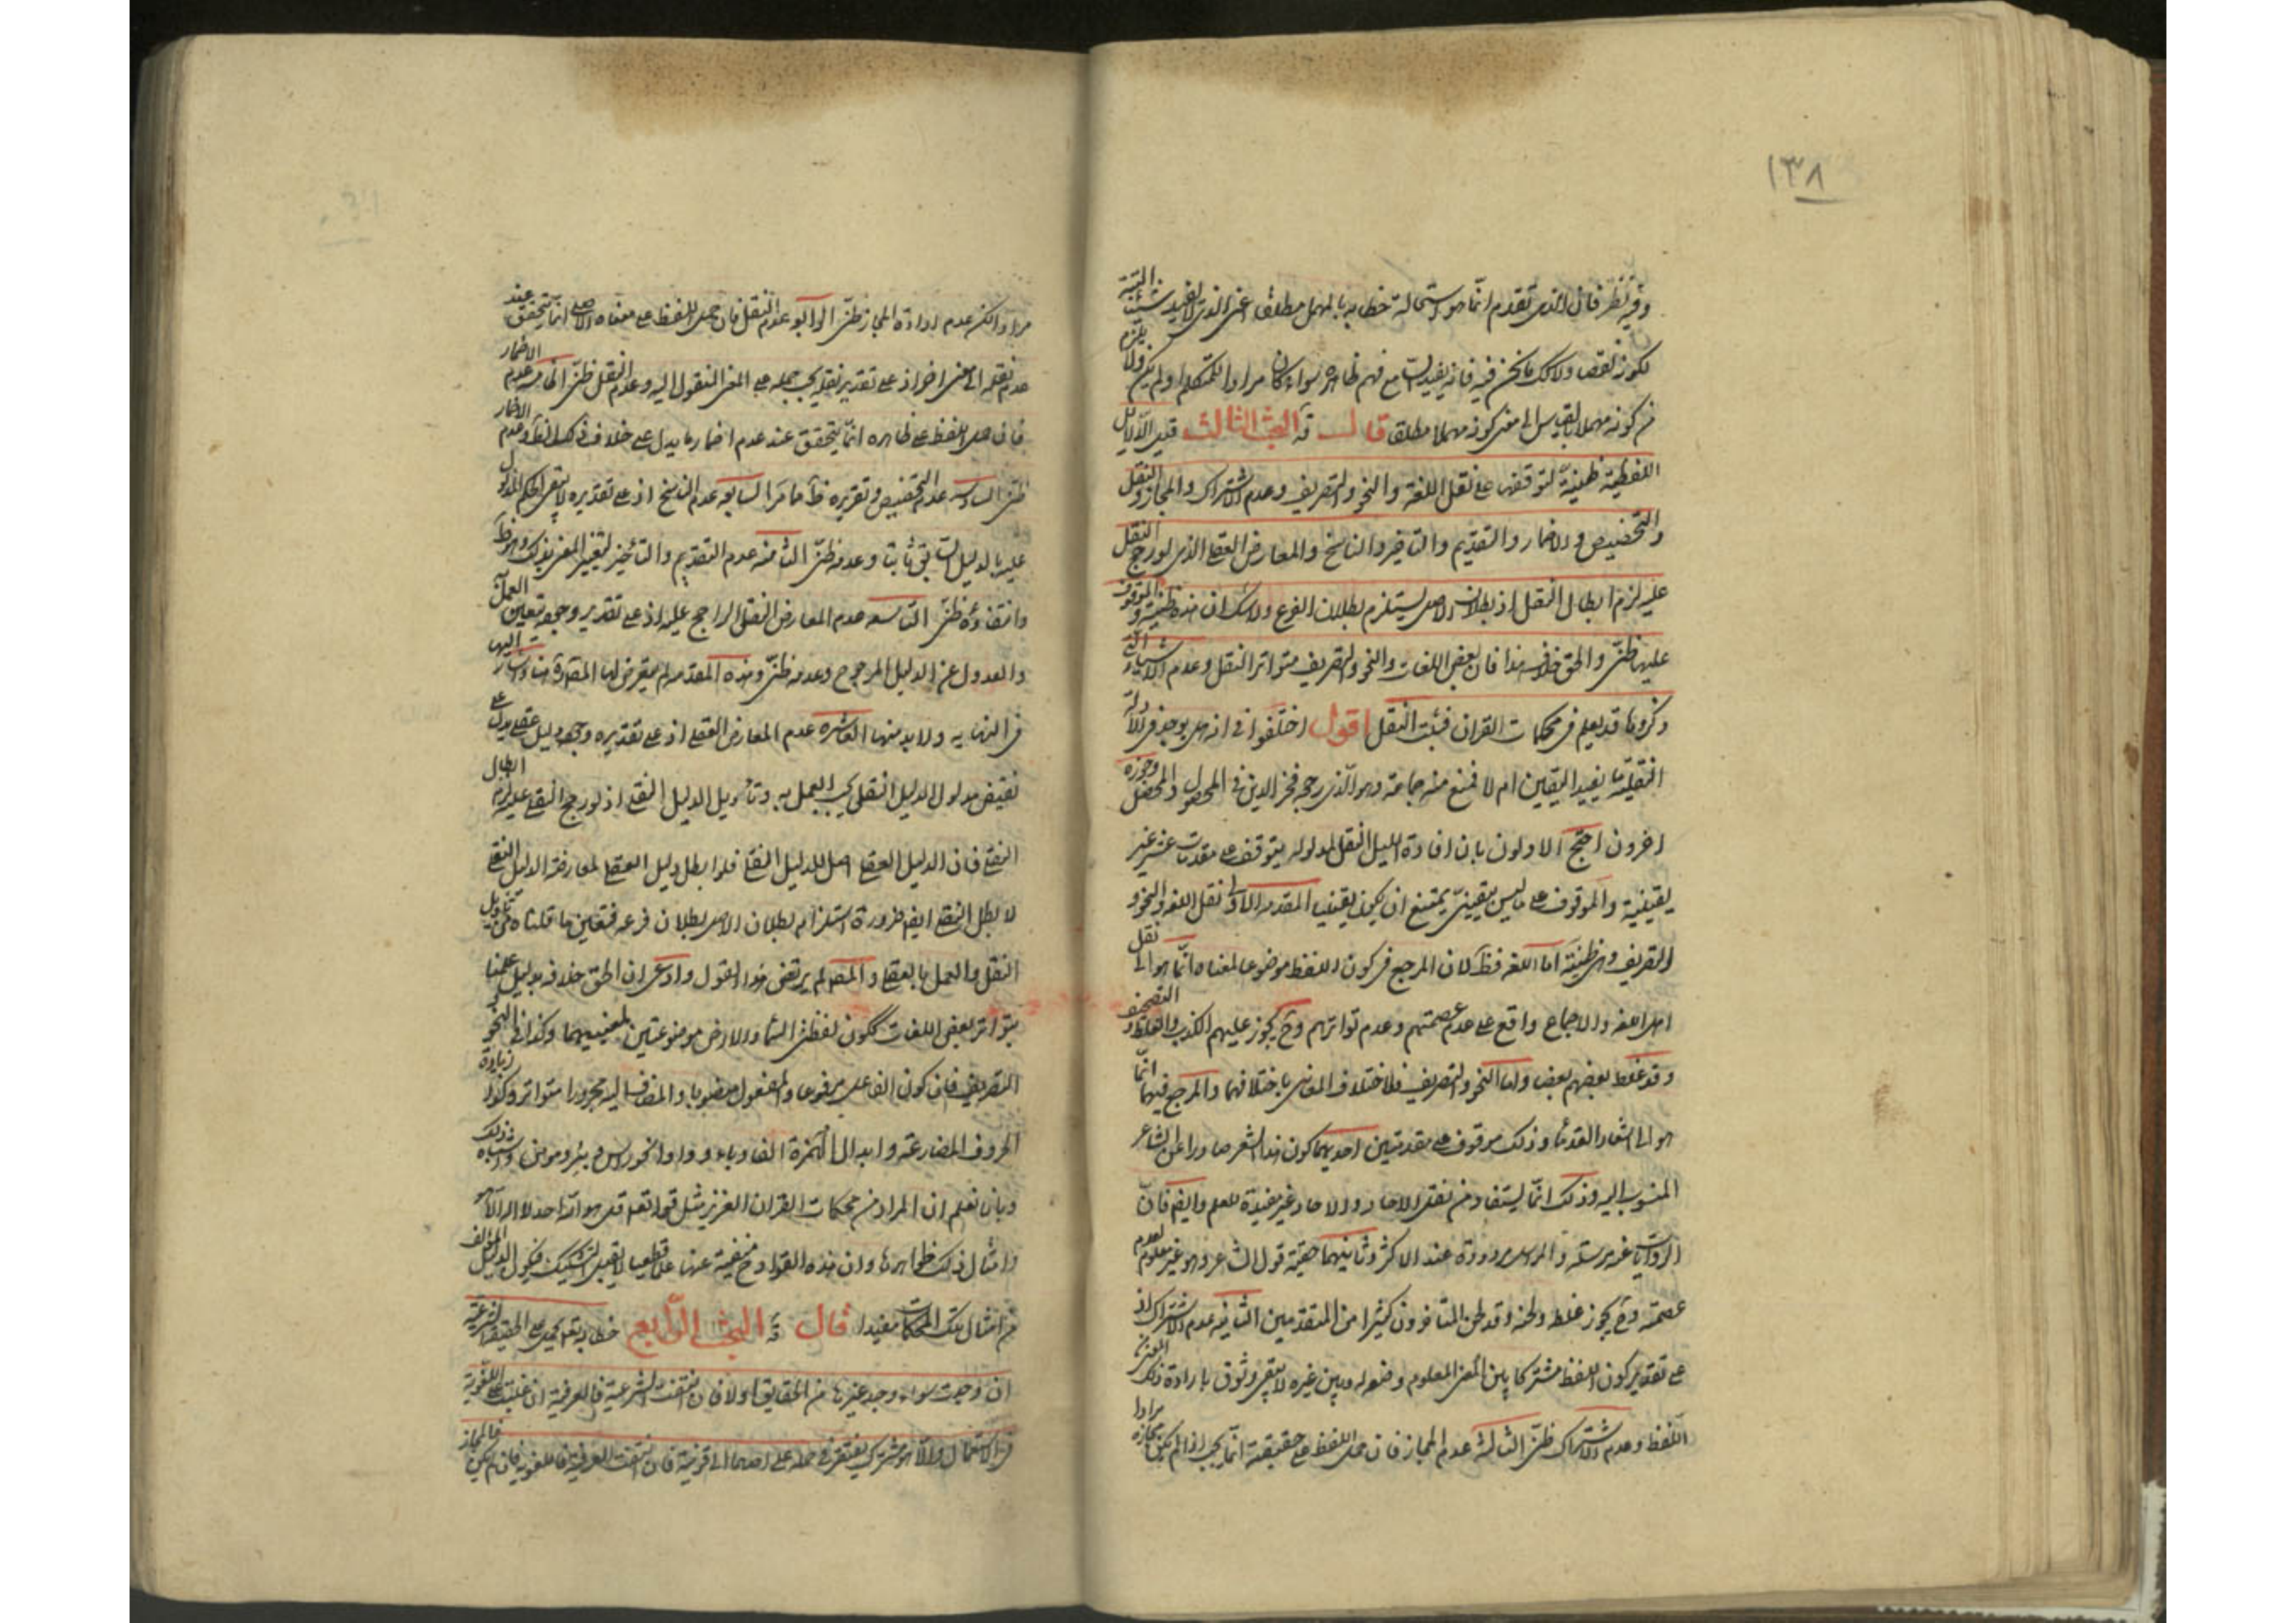 ١٣٨
وفيه نظر فان الذي تقدم انما هو استحالة خطابه بالمهمل مطلقا اعني الذي لا يفيد شيئا البتة
لكونه نقصا ولا كك ما نحن فيه فانه يفيد مع فهم ظاهره سواء كان مرادا للمتكلم او لم يكن ولا يلزم
من كونه مهملا بالقياس الى معنى كونه مهملا مطلقا قال قه البحث الثالث قيل الدلايل
اللفظية ظنية لتوقفها على نقل اللغة والنحو والتصريف وعدم الاشتراك والمجاز والنقل
والتخصيص والاضمار والتقديم والتاخير والناسخ والمعارض العقلي الذي لو رجح النقل
عليه لزم ابطال النقل اذ بطلان الاصل يستلزم بطلان الفرع ولا شك ان هذه ظنية والموقوف
عليها ظني والحق خلاف هذا فان بعض اللغات والنحو والتصريف متواتر النقل وعدم الاشياء التي
ذكروها قد يعلم في محكمات القران فيثبت النقل اقول اختلفوا في انه هل يوجد في الادلة
النقلية ما يفيد اليقين ام لا فمنع منه جماعة وهو الذي رجحه فخر الدين في المحصول والمحصل وجوزه
اخرون احتج الاولون بان افادة الدليل النقلي لمدلوله يتوقف على مقدمات عشر غير
يقينية والموقوف على ما ليس بيقيني يمتنع ان يكون يقينيا المقدمة الاولى نقل اللغة والنحو و
التصريف وهي ظنية اما اللغة فظ لان المرجع في كون اللفظ موضوعا لمعناه انما هو الى نقل
اهل اللغة والاجماع واقع على عدم عصمتهم وعدم تواترهم وح يجوز عليهم الكذب والغلط و التصحيف
وقد غلط بعضهم بعضا واما النحو والتصريف فلاختلاف المعاني باختلافهما والمرجع فيهما انما
هو الى اشعار القدماء وذلك موقوف على مقدمتين احديهما كون هذا الشعر صادرا عن الشاعر
المنسوب اليه وذلك انما يستفاد من نقل الاحاد والاحاد غير مفيدة للعلم وايضا فان
الروايات غير مرسلة والمراسيل مردودة عند الاكثر وثانيهما حقية قول الشاعر وهو غير معلوم لعدم
عصمته وح يجوز غلطه ولحنه وقد لحن المتاخرون كثيرا من المتقدمين الثانية عدم الاشتراك اذ
على تقدير كون اللفظ مشتركا بين المعنى المعلوم وضعه له وبين غيره لا يبقى وثوق بارادة ذلك المعنى من
اللفظ وعدم الاشتراك ظني الثالثة عدم المجاز فان حمل اللفظ على حقيقته انما يجب اذا لم يكن مجازه مرادا
مرادا لكن عدم ارادة المجاز ظني الرابعة عدم النقل فان حمل اللفظ على معناه الاصلي انما يتحقق عند
عدم نقله الى معنى اخر اذ على تقدير نقله يجب حمله على المعنى المنقول اليه وعدم النقل ظني الخامسة عدم الاضمار
فان حمل اللفظ على ظاهره انما يتحقق عند عدم اضمار ما يدل على خلاف ذلك الظ وعدم الاضمار
ظني السادسة عدم التخصيص وتقريره ظ مما مر السابعة عدم الناسخ اذ على تقديره لا يبقى الحكم المدلول
عليه بالدليل السابق ثابتا وعدمه ظني الثامنة عدم التقديم والتاخير لتغير المعنى بذلك وهو ظ
وانتفاؤه ظني التاسعة عدم المعارض النقلي الراجح عليه اذ على تقدير وجوده يتعين العمل به
والعدول عن الدليل المرجوح وعدمه ظني وهذه المقدمة لم يتعرض لها المص هنا واشار اليها
في النهاية ولا بد منها العاشرة عدم المعارض العقلي اذ على تقديره وجود دليل عقلي يدل على
نقيض مدلول الدليل النقلي يجب العمل به وتأويل الدليل النقلي اذ لو رجح النقلي عليه لزم ابطال
النقلي فان الدليل العقلي اصل للدليل النقلي فلو ابطل دليل العقلي لمعارضة الدليل النقلي
لا بطل النقلي ايضا ضرورة استلزام بطلان الاصل بطلان فرعه فتعين ما قلناه من تأويل
النقل والعمل بالعقلي والمص لم يرتض هذا القول وادعى ان الحق خلافه بدليل علمنا
بتواتر بعض اللغات ككون لفظتي السماء والارض موضوعتين لمعنييهما وكذا في النحو و
التصريف فان كون الفاعل مرفوعا والمفعول منصوبا والمضاف اليه مجرورا متواتر وكذا زيادة
الحروف المضارعة وابدال الهمزة الفا وياء وواوا في نحو راس وبئر ومومن واشباه ذلك
وبانا نعلم ان المراد من محكمات القران العزيز مثل قوله تعالى قل هو الله احد لا اله الا هو
وامثال ذلك ظواهرها وان هذه القوادح منفية عنها علما قطعيا لا يقبل التشكيك فيكون الدليل المؤلف
من امثال تلك المحكمات مفيدا قال قه البحث الرابع خطابه تعالى يحمل على الحقيقة الشرعية
ان وجدت سواء وجد غيرها من الحقايق او لا فان انتفت الشرعية فالعرفية ان غلبت على اللغوية
في الاستعمال والا فهو مشترك يفتقر في حمله على احدهما الى قرينة فان انتفت العرفية فاللغوية فان لم يكن فالمجاز